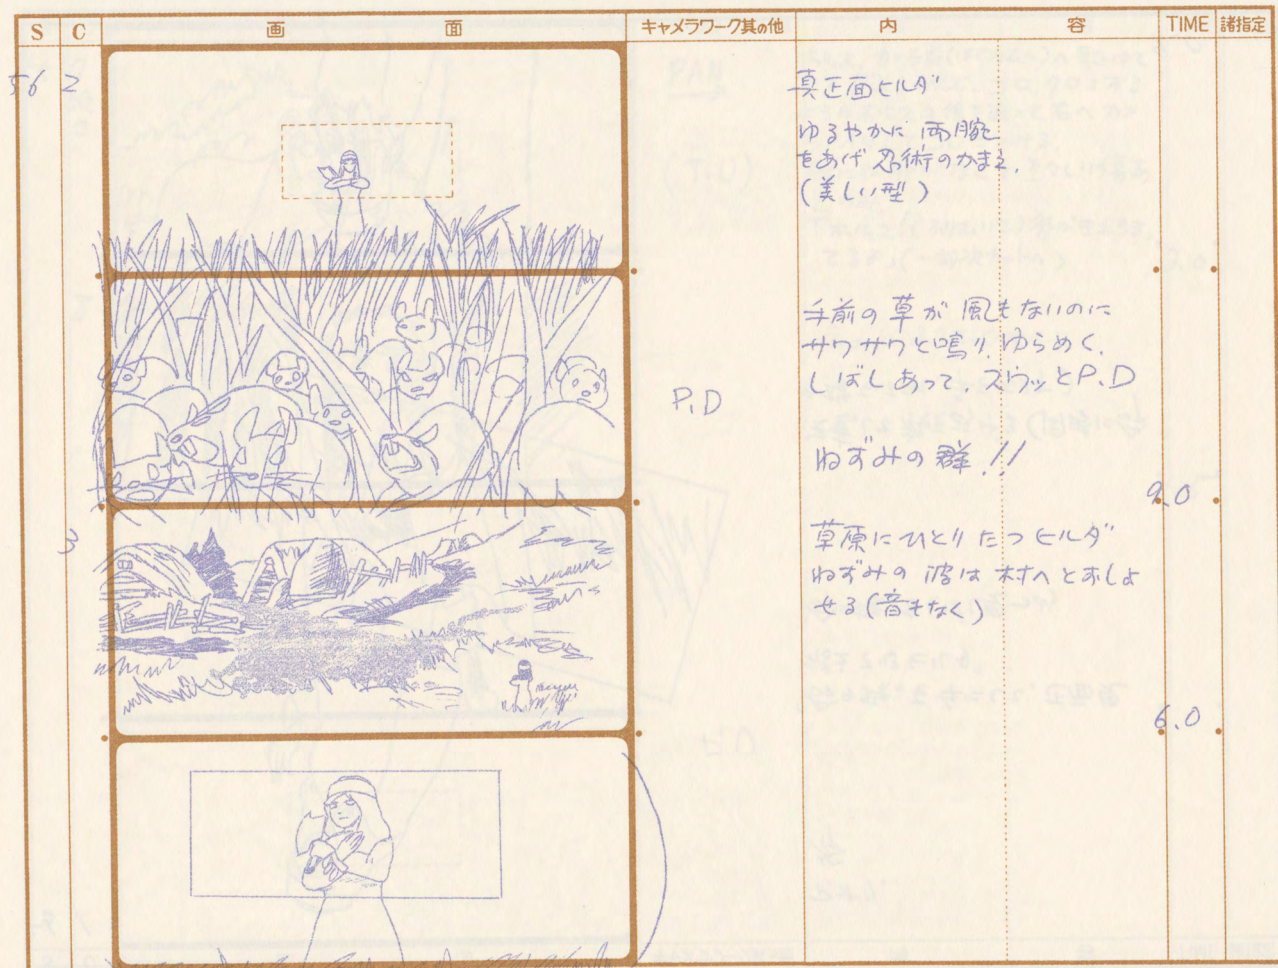 S C 画 面 キャメラワーク其の他 内 容 TIME 諸指定
56 2
真正面ヒルダ
ゆるやかに 両腕
をあげ 忍術のかまえ、
(美しい型)
手前の草が 風もないのに
サワサワと鳴り、ゆらめく、
しばしあって、スウッとP.D
P.D
ねずみの群!!
9.0
3
草原にひとりたつヒルダ
ねずみの波は村へとおしよ
せる(音もなく)
6.0